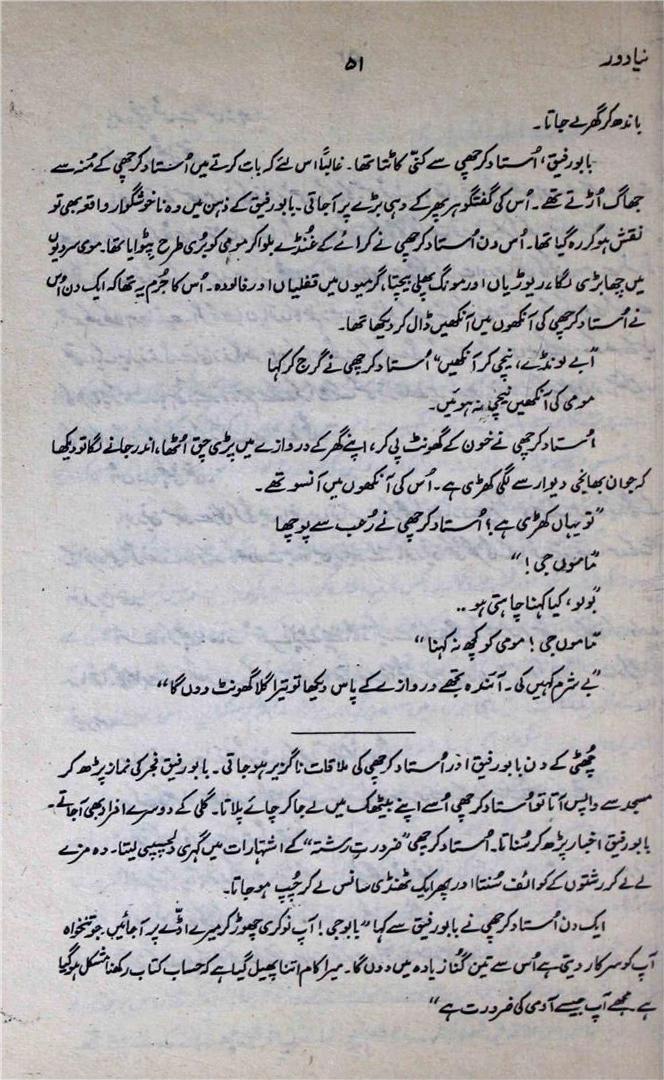 نیا دور
۵۱
باندھ کر گھر لے جاتا۔
بابو رفیق، اُستاد کرچھی سے کنّی کاٹتا تھا۔ غالباً اس لئے کہ بات کرتے میں اُستاد کرچھی کے مُنہ سے
جھاگ اُڑتے تھے۔ اُس کی گفتگو ہر پھر کے دہی بڑے پر آجاتی۔ بابو رفیق کے ذہن میں وہ ناخوشگوار واقعہ بھی تو
نقش ہو کر رہ گیا تھا۔ اُس دن اُستاد کرچھی نے کرائے کے غُنڈے بلوا کر مومی کو بُری طرح پٹوایا تھا۔ مومی سردیوں
میں چھابڑی لگا، ریوڑیاں اور مونگ پھلی بیچتا، گرمیوں میں قفلیاں اور فالودہ۔ اُس کا جُرم یہ تھا کہ ایک دن اُس
نے اُستاد کرچھی کی آنکھوں میں آنکھیں ڈال کر دیکھا تھا۔
"ابے لونڈے، نیچی کر آنکھیں" اُستاد کرچھی نے گرج کر کہا
مومی کی آنکھیں نیچی نہ ہوئیں۔
اُستاد کرچھی نے خون کے گھونٹ پی کر، اپنے گھر کے دروازے میں پڑی چق اُٹھا، اندر جانے لگا تو دیکھا
کہ جوان بھانجی دیوار سے لگی کھڑی ہے۔ اُس کی آنکھوں میں آنسو تھے۔
"تو یہاں کھڑی ہے؟ اُستاد کرچھی نے رُعب سے پوچھا
"ماموں جی!"
"بولو، کیا کہنا چاہتی ہو..
"ماموں جی! مومی کو کچھ نہ کہنا"
"بے شرم کہیں کی۔ آئندہ تجھے دروازے کے پاس دیکھا تو تیرا گلا گھونٹ دوں گا"
چُھٹی کے دن بابو رفیق اور اُستاد کرچھی کی ملاقات ناگزیر ہو جاتی۔ بابو رفیق فجر کی نماز پڑھ کر
مسجد سے واپس آتا تو اُستاد کرچھی اُسے اپنے بیٹھک میں لے جا کر چائے پلاتا۔ گلی کے دوسرے افراد بھی آجاتے۔
بابو رفیق اخبار پڑھ کر سُناتا۔ اُستاد کرچھی "ضرورتِ رشتہ" کے اشتہارات میں گہری دلچسپی لیتا۔ وہ مزے
لے لے کر رشتوں کے کوائف سُنتا اور پھر ایک ٹھنڈی سانس لے کر چُپ ہو جاتا۔
ایک دن اُستاد کرچھی نے بابو رفیق سے کہا "بابو جی! آپ نوکری چھوڑ کر میرے اڈّے پر آجائیں۔ جو تنخواہ
آپ کو سرکار دیتی ہے اُس سے تین گُنا زیادہ میں دوں گا۔ میرا کام اتنا پھیل گیا ہے کہ حساب کتاب رکھنا مشکل ہو گیا
ہے۔ مجھے آپ جیسے آدمی کی ضرورت ہے"